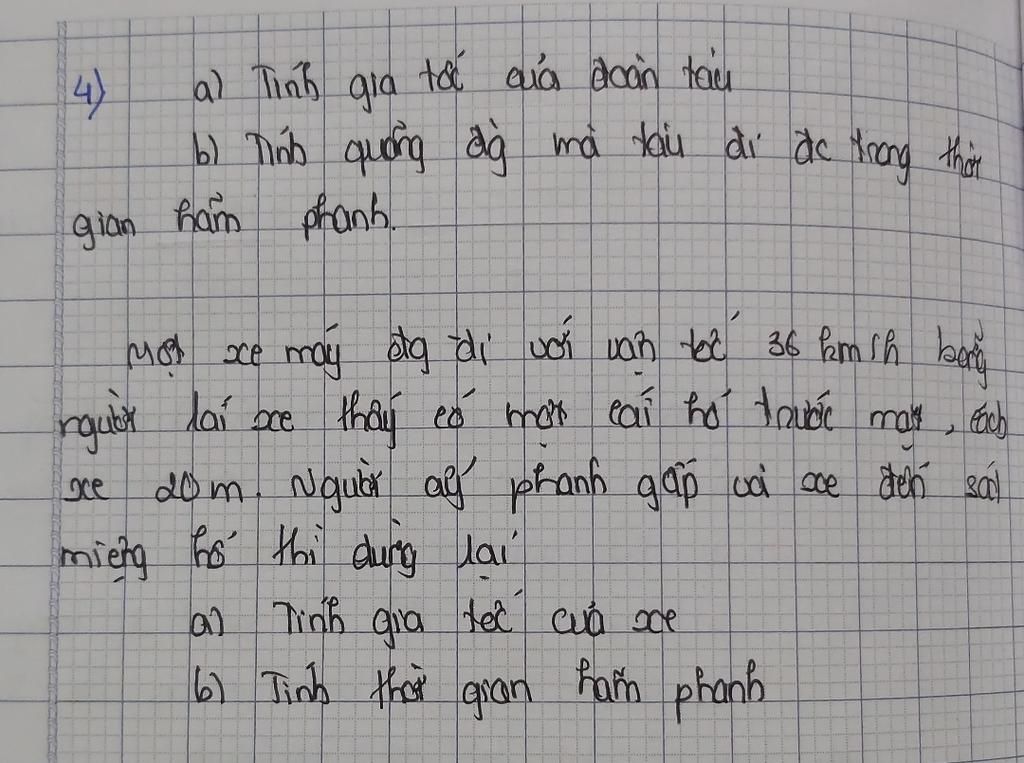 4) a) Tính gia tốc của đoàn tàu
b) Tính quãng đg mà tàu đi đc trong thời
gian hãm phanh.
Một xe máy đg đi với vận tốc 36 km/h bỗng
người lái xe thấy có một cái hố trước mặt, cách
xe 20m. Người ấy phanh gấp và xe đến sát
miệng hố thì dừng lại
a) Tính gia tốc của xe
b) Tính thời gian hãm phanh